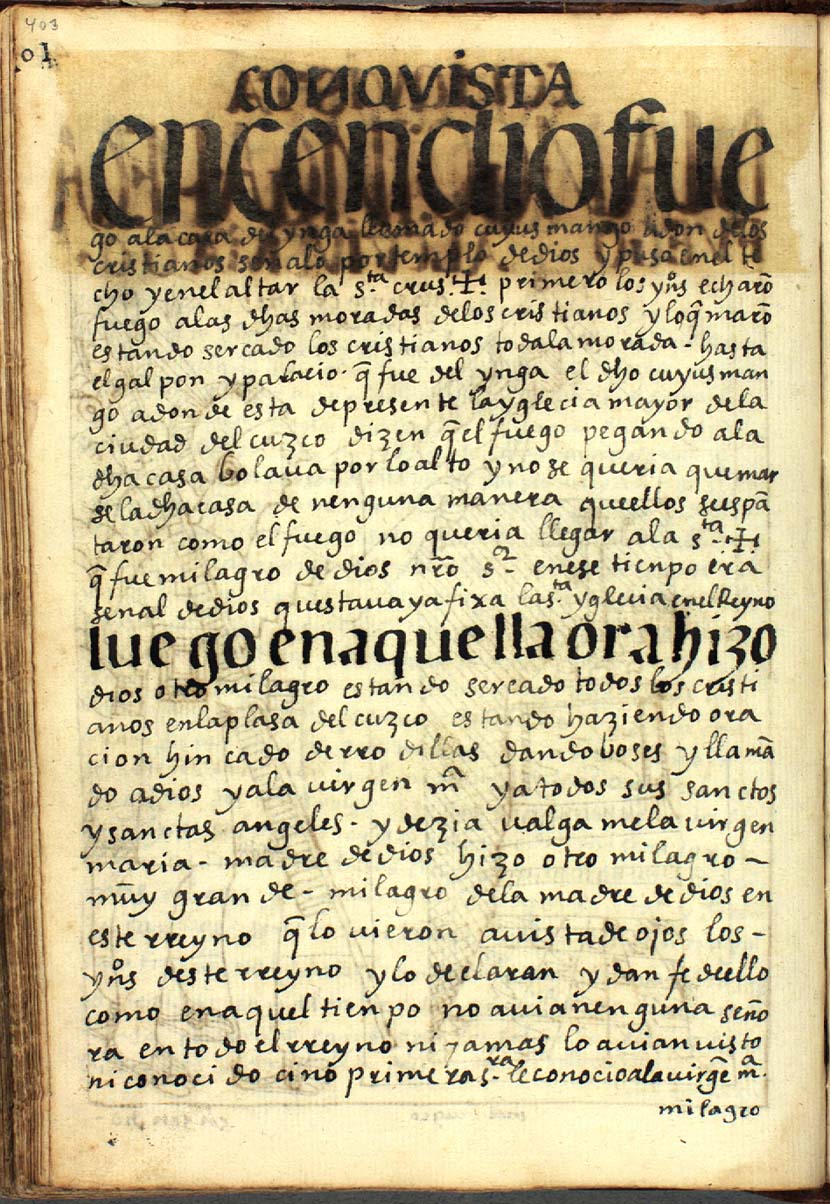 403
01
CONQVISTA
encendio fue
go a la casa del ynga llamado cuyus mango adon de los
cristianos señalo por templo de dios y pusa en el te
cho y en el altar la s.ta crus ☩ primero los yn̊s echarõ
fuego a las dhas moradas de los cristianos y lo q̃marõ
estando sercado los cristianos toda la morada - hasta
el galpon y palacio. q̃ fue del ynga el dho cuyus man
go adonde esta de presente la yglecia mayor de la
ciudad del cuzco dizen q̃ el fuego pegando a la
dha casa bolaua por lo alto y no se queria quemar
se la dha casa de nenguna manera que ellos se espã
taron como el fuego no queria llegar a la s.ta ☩
q̃ fue milagro de dios nr̃o s.r en ese tienpo era
señal de dios questaua ya fixa la s.ta yglecia en el Reyno
luego en aquella ora hizo
dios otro milagro estando sercado todos los cristi
anos en la plasa del cuzco estando haziendo ora
cion hincado de rrodillas dando boses y llamã
do a dios y a la uirgen mª y a todos sus sanctos
y sanctas angeles - y dezia ualga me la uirgen
maria - madre de dios hizo otro milagro -
muy grande - milagro de la madre de dios en
este rreyno q̃ lo uieron a uista de ojos los -
yn̊s deste rreyno y lo declaran y dan fe dello
como en aquel tienpo no auia nenguna seño
ra en todo el rreyno ni jamas lo auian uisto
ni conocido cino primera s.ra le conocio a la uirgẽ mª.
milagro